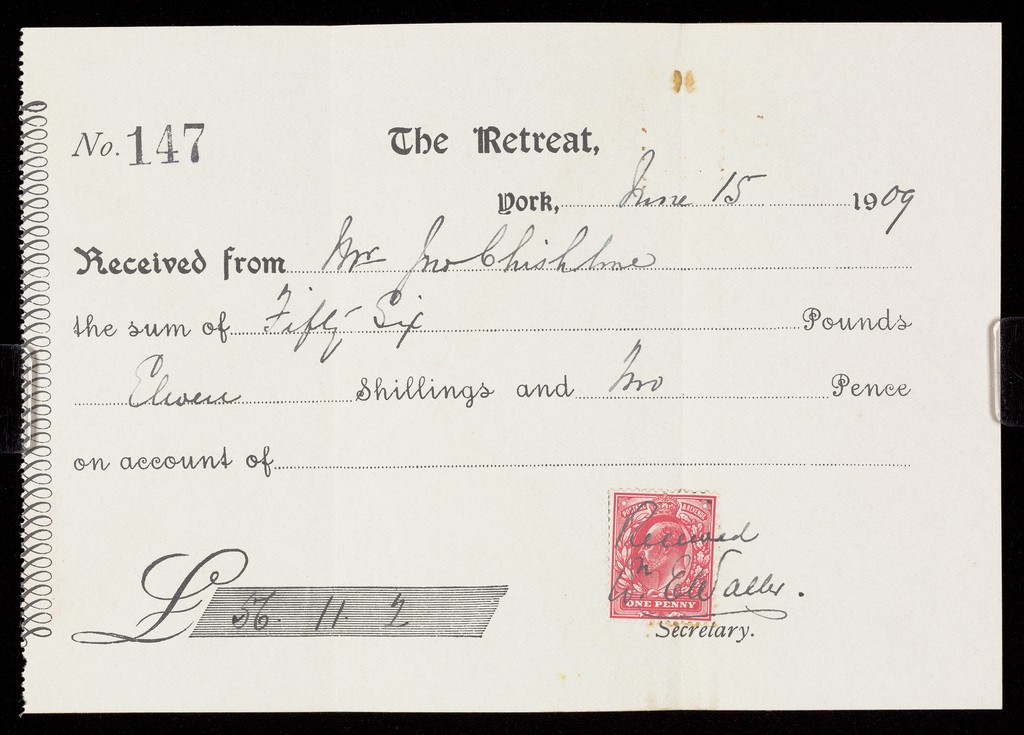 No. 147
The Retreat,
York, June 15 1909
Received from Mr Jno Chisholme
the sum of Fifty Six Pounds
Eleven Shillings and Two Pence
on account of
£ 56. 11. 2
POSTAGE & REVENUE
Received
W. E. Waller.
ONE PENNY
Secretary.